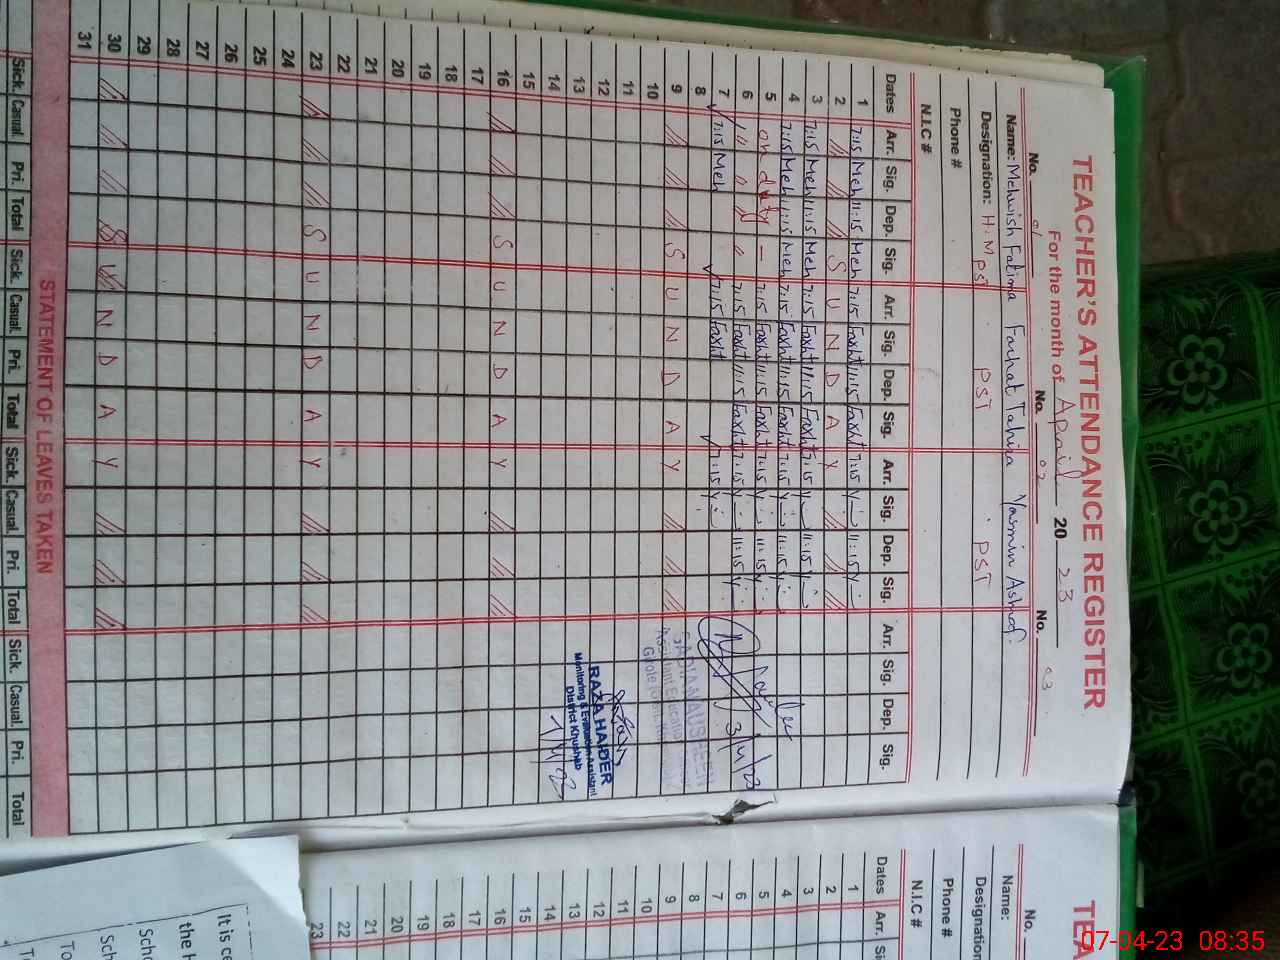 TEACHER'S ATTENDANCE REGISTER
For the month of April 2023
No. 01 No. 02 No. 03
Name: Mehwish Fatima Farhat Tahira Yasmin Ashraf
Designation: H.M PST PST PST
Phone #
N.I.C #
Dates Arr. Sig. Dep. Sig. Arr. Sig. Dep. Sig. Arr. Sig. Dep. Sig. Arr. Sig. Dep. Sig.
1 7:15 Meh 11:15 Meh 7:15 Farht 11:15 Farht 7:15 11:15
2 S U N D A Y
3 7:15 Meh 11:15 Meh 7:15 Farht 11:15 Farht 7:15 11:15
4 7:15 Meh 11:15 Meh 7:15 Farht 11:15 Farht 7:15 11:15
5 on duty — 7:15 Farht 11:15 Farht 7:15 11:15
6 " " " " 7:15 Farht 11:15 Farht 7:15 11:15
7 7:15 Meh 7:15 Farht 7:15
3/4/23
8
9 S U N D A Y
SADIA NAUSHEEN
10
11
12
RAZA HAIDER
Monitoring & Evaluation Assistant
District Khushab
13
14
15
16 S U N D A Y
17
18
19
20
21
22
23 S U N D A Y
24
25
26
27
28
29
30 S U N D A Y
31
STATEMENT OF LEAVES TAKEN
Sick. Casual. Pri. Total Sick. Casual. Pri. Total Sick. Casual. Pri. Total Sick. Casual. Pri. Total
TEA
No.
Name:
Designation
Phone #
N.I.C #
Dates Arr.
1
2
3
4
5
6
7
8
9
10
11
12
13
14
15
16
17
18
19
20
21
22
23
It is ce
the
07-04-23 08:35